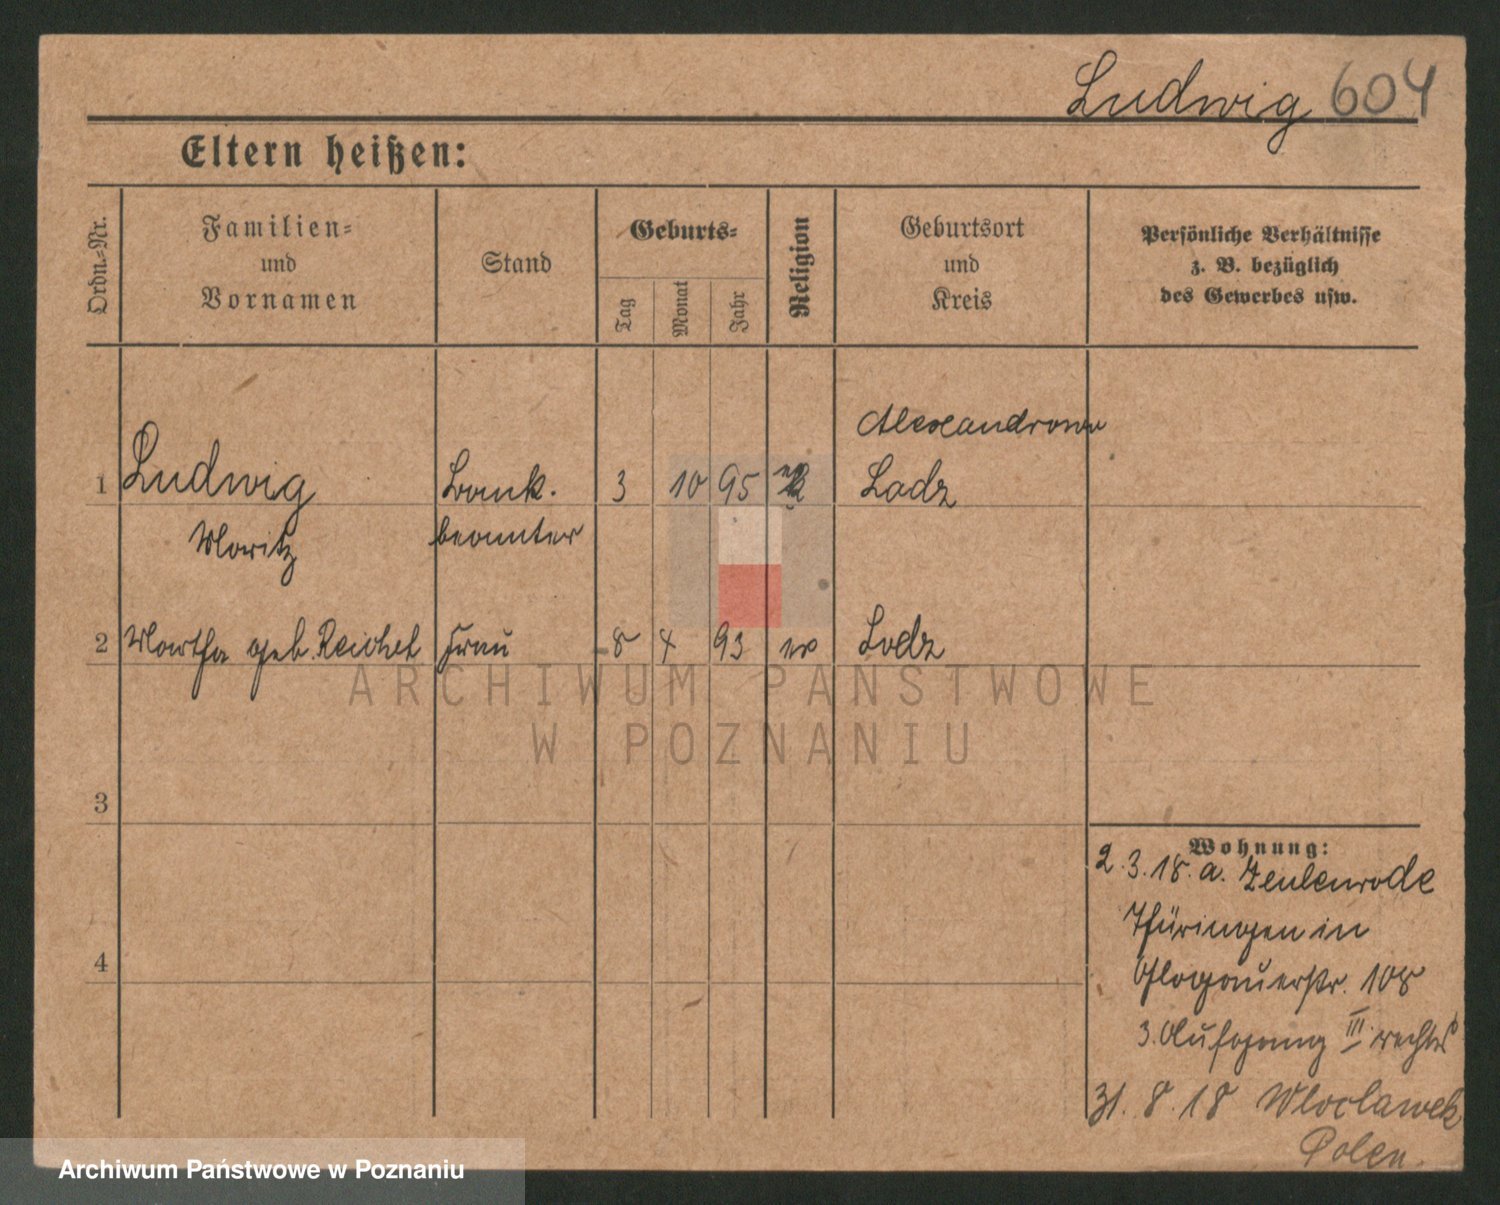 Ludwig 604
Eltern heißen:
Ordn.-Nr.
Familien- und Vornamen
Stand
Geburts-
Tag
Monat
Jahr
Religion
Geburtsort und Kreis
Persönliche Verhältnisse
z. B. bezüglich
des Gewerbes usw.
Alexandrowo
1 Ludwig Bank. 3 10 95 Lodz
Moritz beamter
2 Martha geb. Reichel Frau 8 4 93 ev Lodz
3
4
Wohnung:
2.3.18. a. Zeulenroda
Thüringen in
Glogauerstr. 108
3. Aufgang III rechts
31.8.18 Wloclawek
Polen.
ARCHIWUM PAŃSTWOWE
W POZNANIU
Archiwum Państwowe w Poznaniu